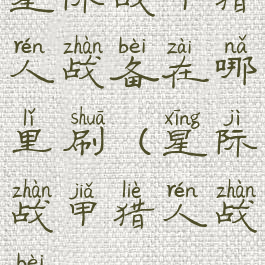 星际战甲猎
rén zhàn bèi zài nǎ
人战备在哪
lǐ shuā xīng jì
里刷（星际
zhàn jiǎ liè rén zhàn
战甲猎人战
bèi